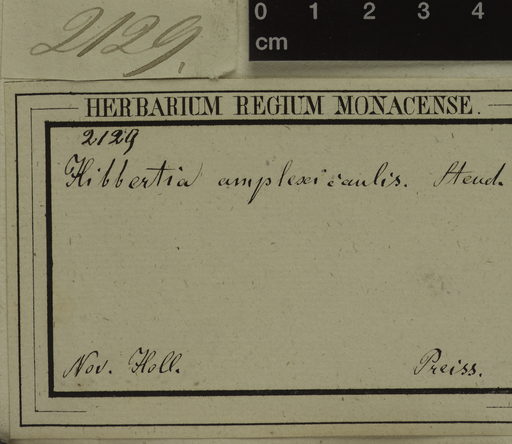 2129.
0 1 2 3 4
cm
HERBARIUM REGIUM MONACENSE.
2129
Hibbertia amplexicaulis. Steud.
Nov. Holl. Preiss.